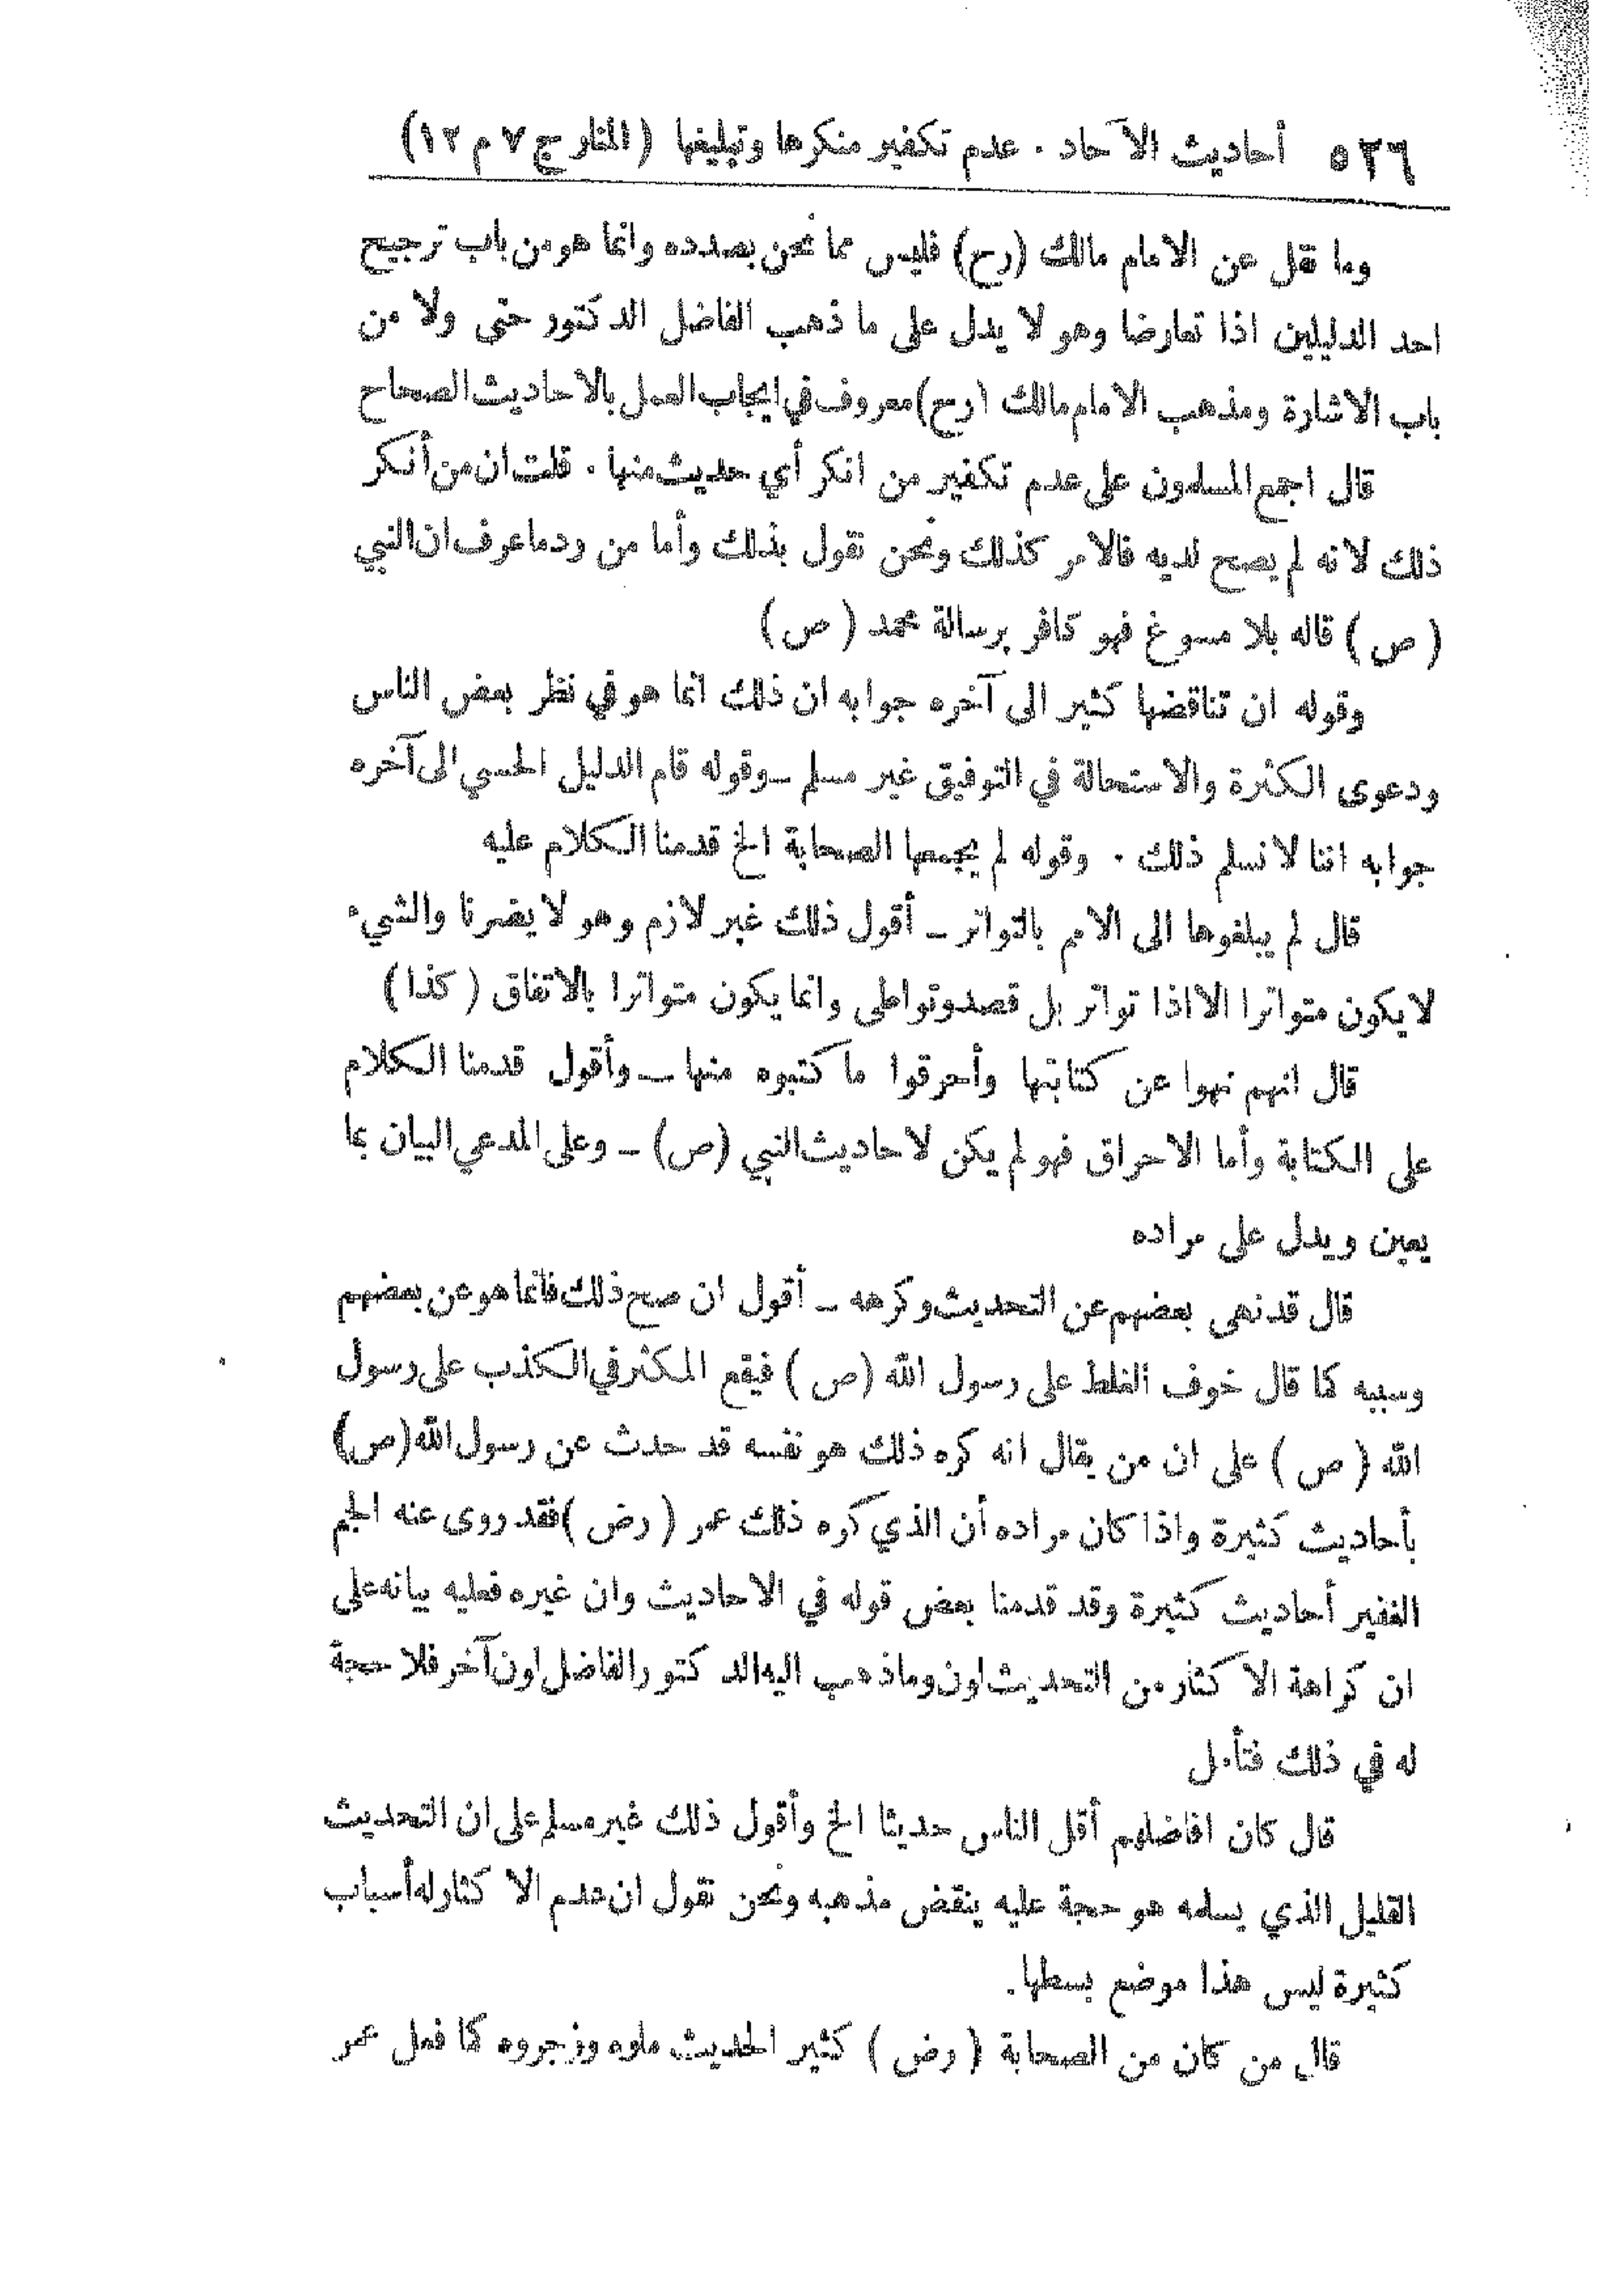 ٥٢٦ أحاديث الآحاد . عدم تكفير منكرها وتبليغها (المنار ج ٧ م ١٢)
وما نقل عن الامام مالك (رح) فليس مما نحن بصدده وانما هو من باب ترجيح
احد الدليلين اذا تعارضا وهو لا يدل على ما ذهب الفاضل الدكتور حتى ولا من
باب الاشارة ومذهب الامام مالك (رح) معروف في ايجاب العمل بالاحاديث الصحاح
قال اجمع المسلمون على عدم تكفير من انكر أي حديث منها . قلت ان من أنكر
ذلك لانه لم يصح لديه فالامر كذلك ونحن نقول بذلك وأما من رد ما عرف ان النبي
(ص) قاله بلا مسوغ فهو كافر برسالة محمد (ص)
وقوله ان تناقضها كثير الى آخره جوابه ان ذلك انما هو في نظر بعض الناس
ودعوى الكثرة والاستحالة في التوفيق غير مسلم ــ وقوله قام الدليل الحسي الى آخره
جوابه اننا لا نسلم ذلك . وقوله لم يجمعها الصحابة الخ قدمنا الكلام عليه
قال لم يبلغوها الى الامم بالتواتر ــ أقول ذلك غير لازم وهو لا يضرنا والشيء
لا يكون متواترا الا اذا تواتر بل قصد وتواطى وانما يكون متواترا بالاتفاق (كذا)
قال انهم نهوا عن كتابتها وأحرقوا ما كتبوه منها ــ وأقول قدمنا الكلام
على الكتابة وأما الاحراق فهو لم يكن لاحاديث النبي (ص) ــ وعلى المدعي البيان بما
يعين ويدل على مراده
قال قد نهى بعضهم عن التحديث وكرهه ــ أقول ان صح ذلك فانما هو عن بعضهم
وسببه كما قال خوف الغلط على رسول الله (ص) فيقع المكثر في الكذب على رسول
الله (ص) على ان من يقال انه كره ذلك هو نفسه قد حدث عن رسول الله (ص)
بأحاديث كثيرة واذا كان مراده أن الذي كره ذلك عمر (رض) فقد روى عنه الجم
الغفير أحاديث كثيرة وقد قدمنا بعض قوله في الاحاديث وان غيره فعليه بيانه على
ان كراهة الاكثار من التحديث لون وما ذهب اليه الدكتور الفاضل لون آخر فلا حجة
له في ذلك فتأمل
قال كان افاضلهم أقل الناس حديثا الخ وأقول ذلك غير مسلم على ان التحديث
القليل الذي يسلمه هو حجة عليه ينقض مذهبه ونحن نقول ان عدم الاكثار له أسباب
كثيرة ليس هذا موضع بسطها .
قال من كان من الصحابة (رض) كثير الحديث ملوه وزجروه كما فعل عمر